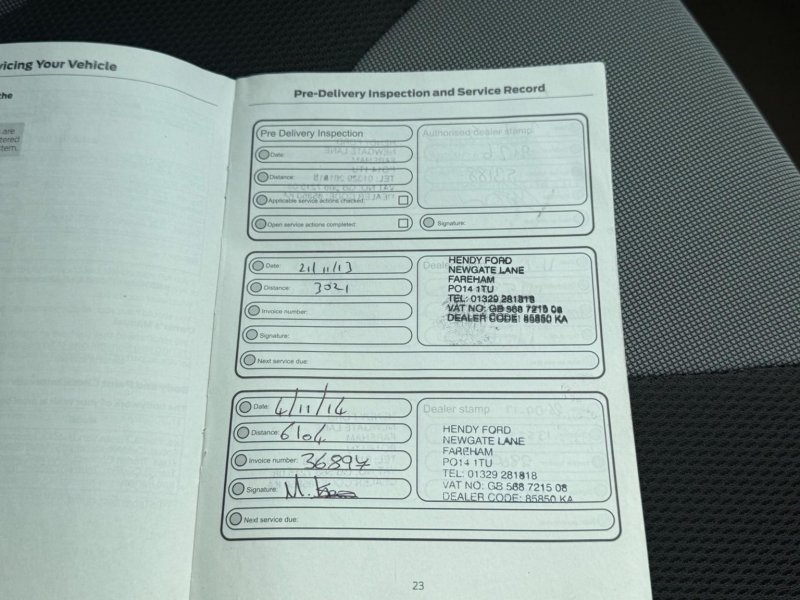 vicing Your Vehicle
the
are
tered
tem.
Pre-Delivery Inspection and Service Record
Pre Delivery Inspection
Authorised dealer stamp
Date:
Distance:
Applicable service actions checked:
Open service actions completed:
Signature:
Date: 21/11/13
Distance: 3021
Invoice number:
Signature:
Next service due:
Deale
HENDY FORD
NEWGATE LANE
FAREHAM
PO14 1TU
TEL: 01329 281818
VAT NO: GB 568 7215 08
DEALER CODE: 85850 KA
Date: 4/11/14
Distance: 6104
Invoice number: 36897
Signature: M.
Next service due:
Dealer stamp
HENDY FORD
NEWGATE LANE
FAREHAM
PO14 1TU
TEL: 01329 281818
VAT NO: GB 568 7215 08
DEALER CODE: 85850 KA
23